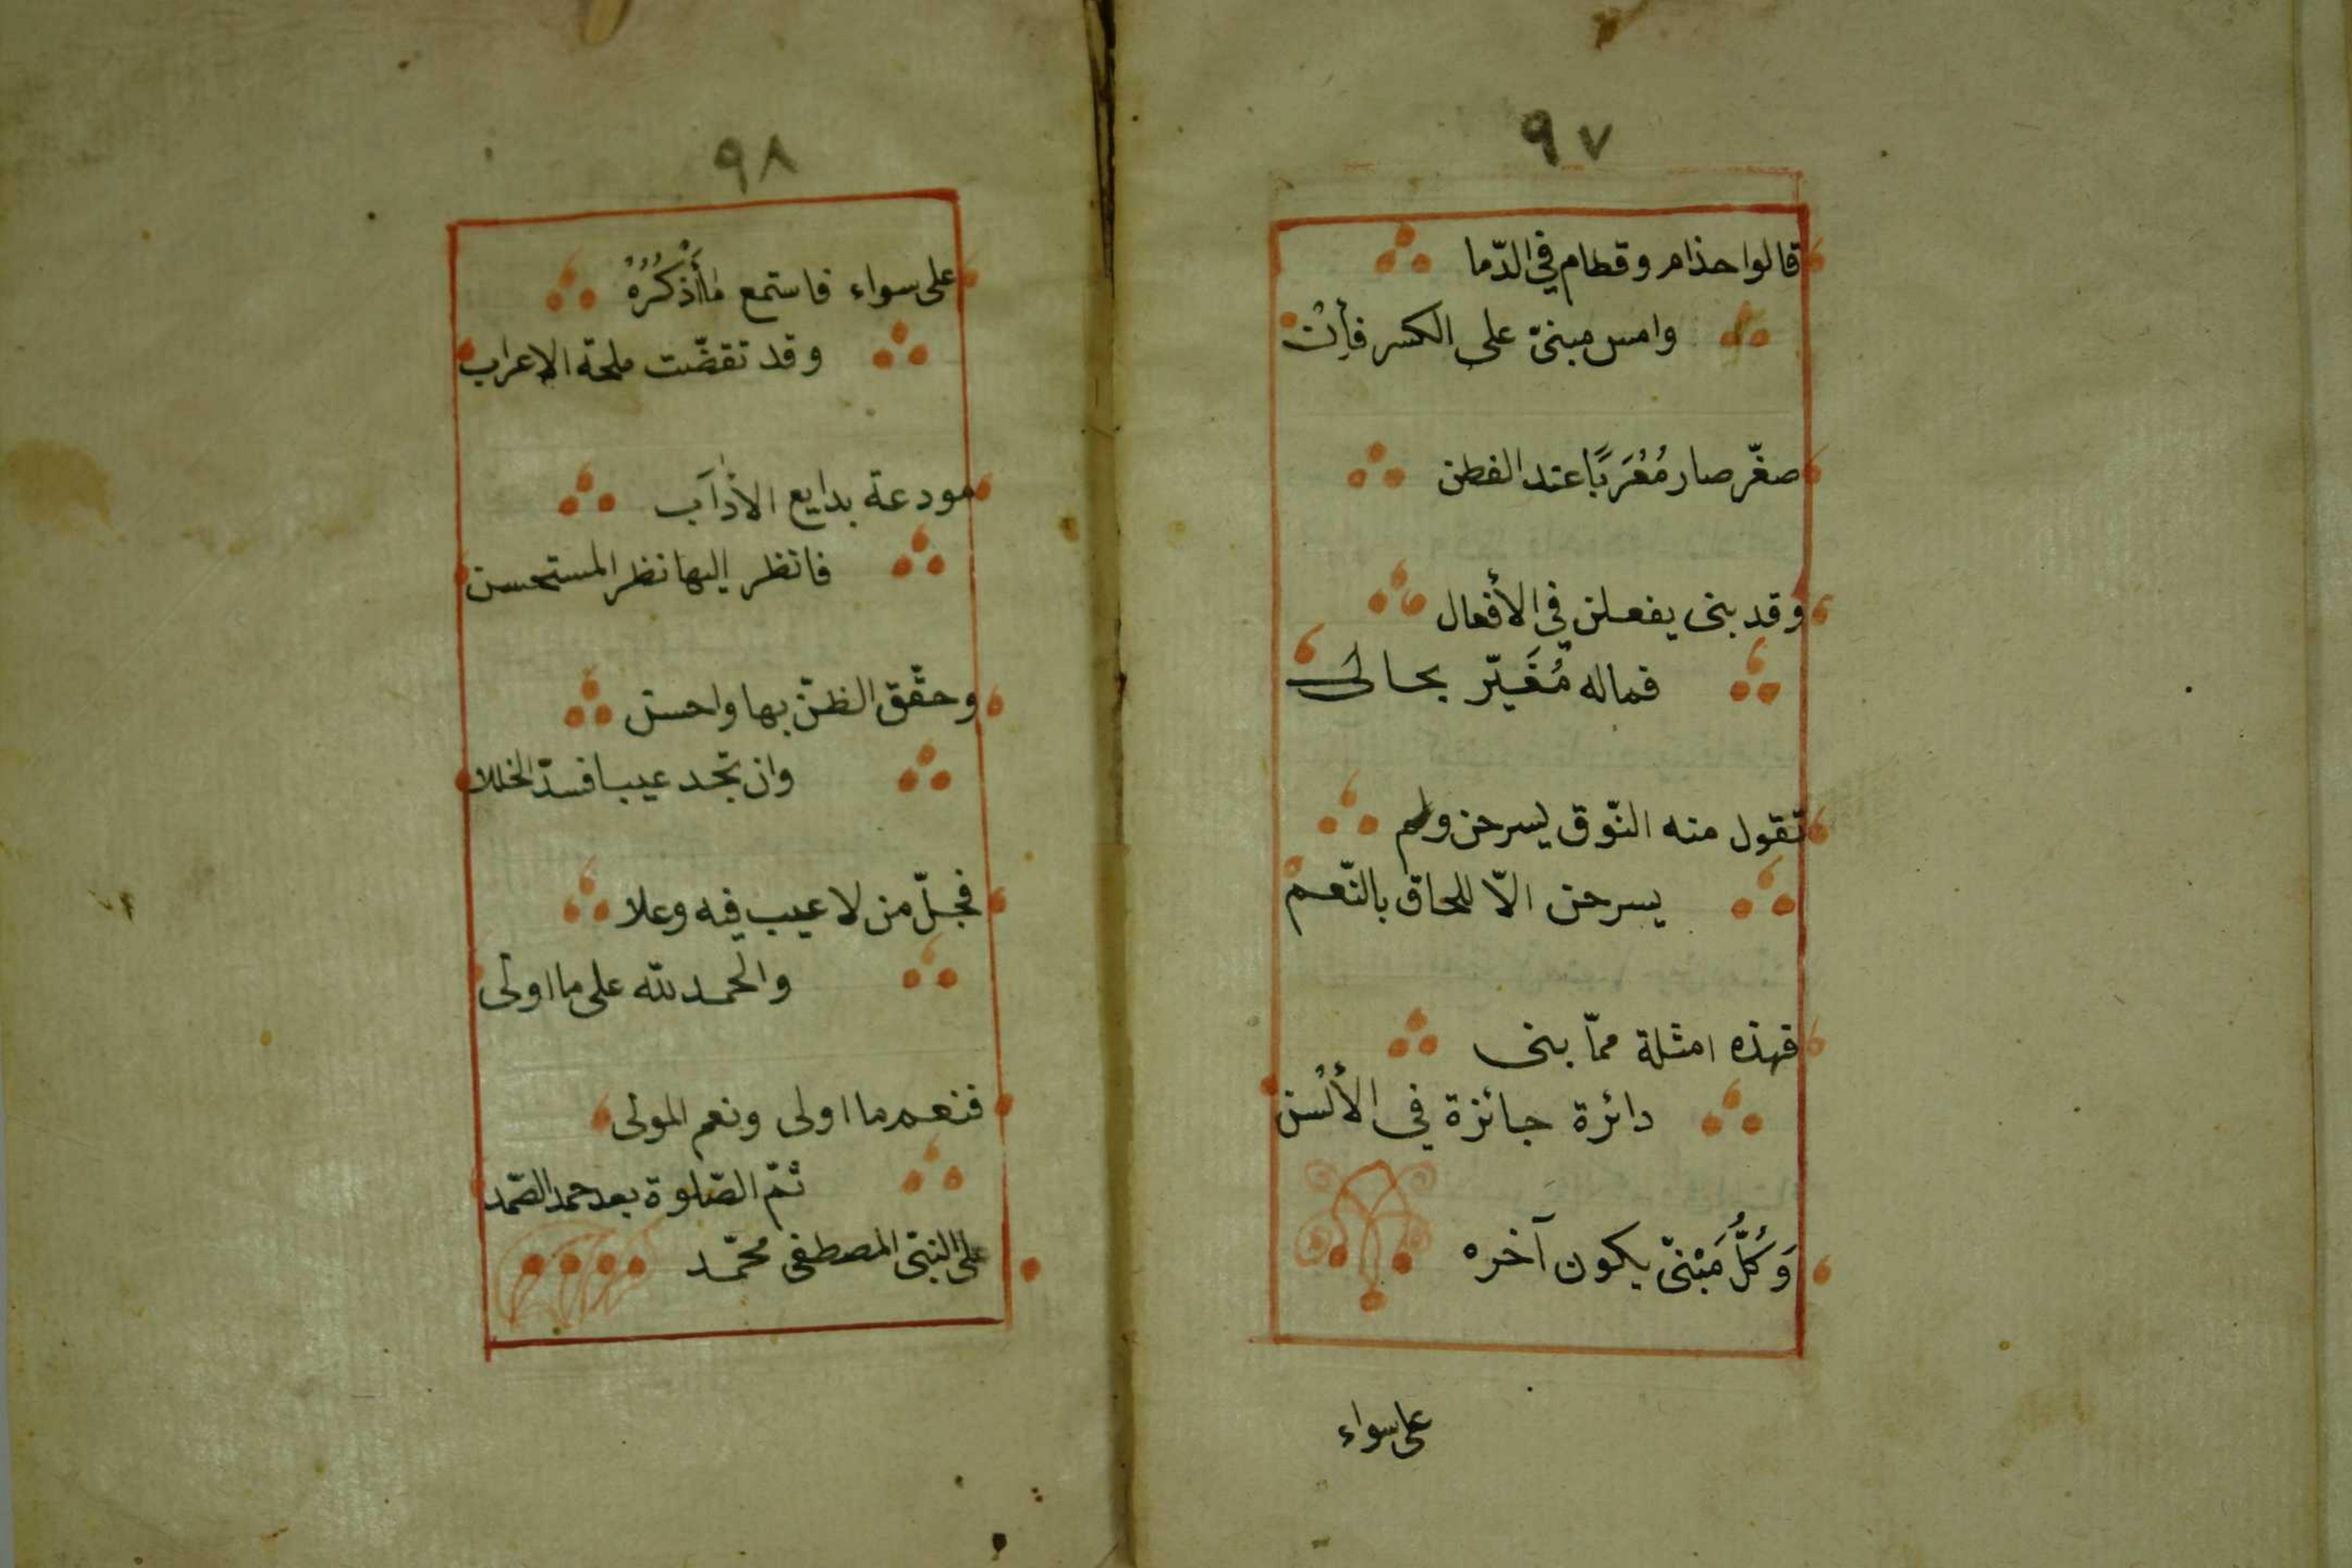 ٩٧
قالوا حذام وقطام في الدّما
وامس مبنيّ على الكسر فأِنْ
صغّر صار مُعْرَبًا عند الفطن
وقد بنى يفعلن في الأفعال
فماله مُغَيّر بحالى
تقول منه النّوق يسرحن ولم
يسرحن الّا للحاق بالنّعمْ
فهذه امثلة ممّا بنى
دائرة جائزة في الألْسن
وَكُلُّ مَبْنىّ يكون آخره
على سواء
٩٨
على سواء فاستمع مٰا أَذْكُرُهُ
وقد تقضّت ملحة الاعراب
مودعة بدايع الآدٰاب
فانظر إليها نظر المستحسن
وحقّق الظنّ بها واحسن
وان تجد عيبا فسدّ الخللا
فجلّ من لا عيب فيه وعلا
والحمد لله على ما اولى
فنعم ما اولى ونعم المولى
ثمّ الصّلوة بعد حمد الصّمد
على النبيّ المصطفى محمّد